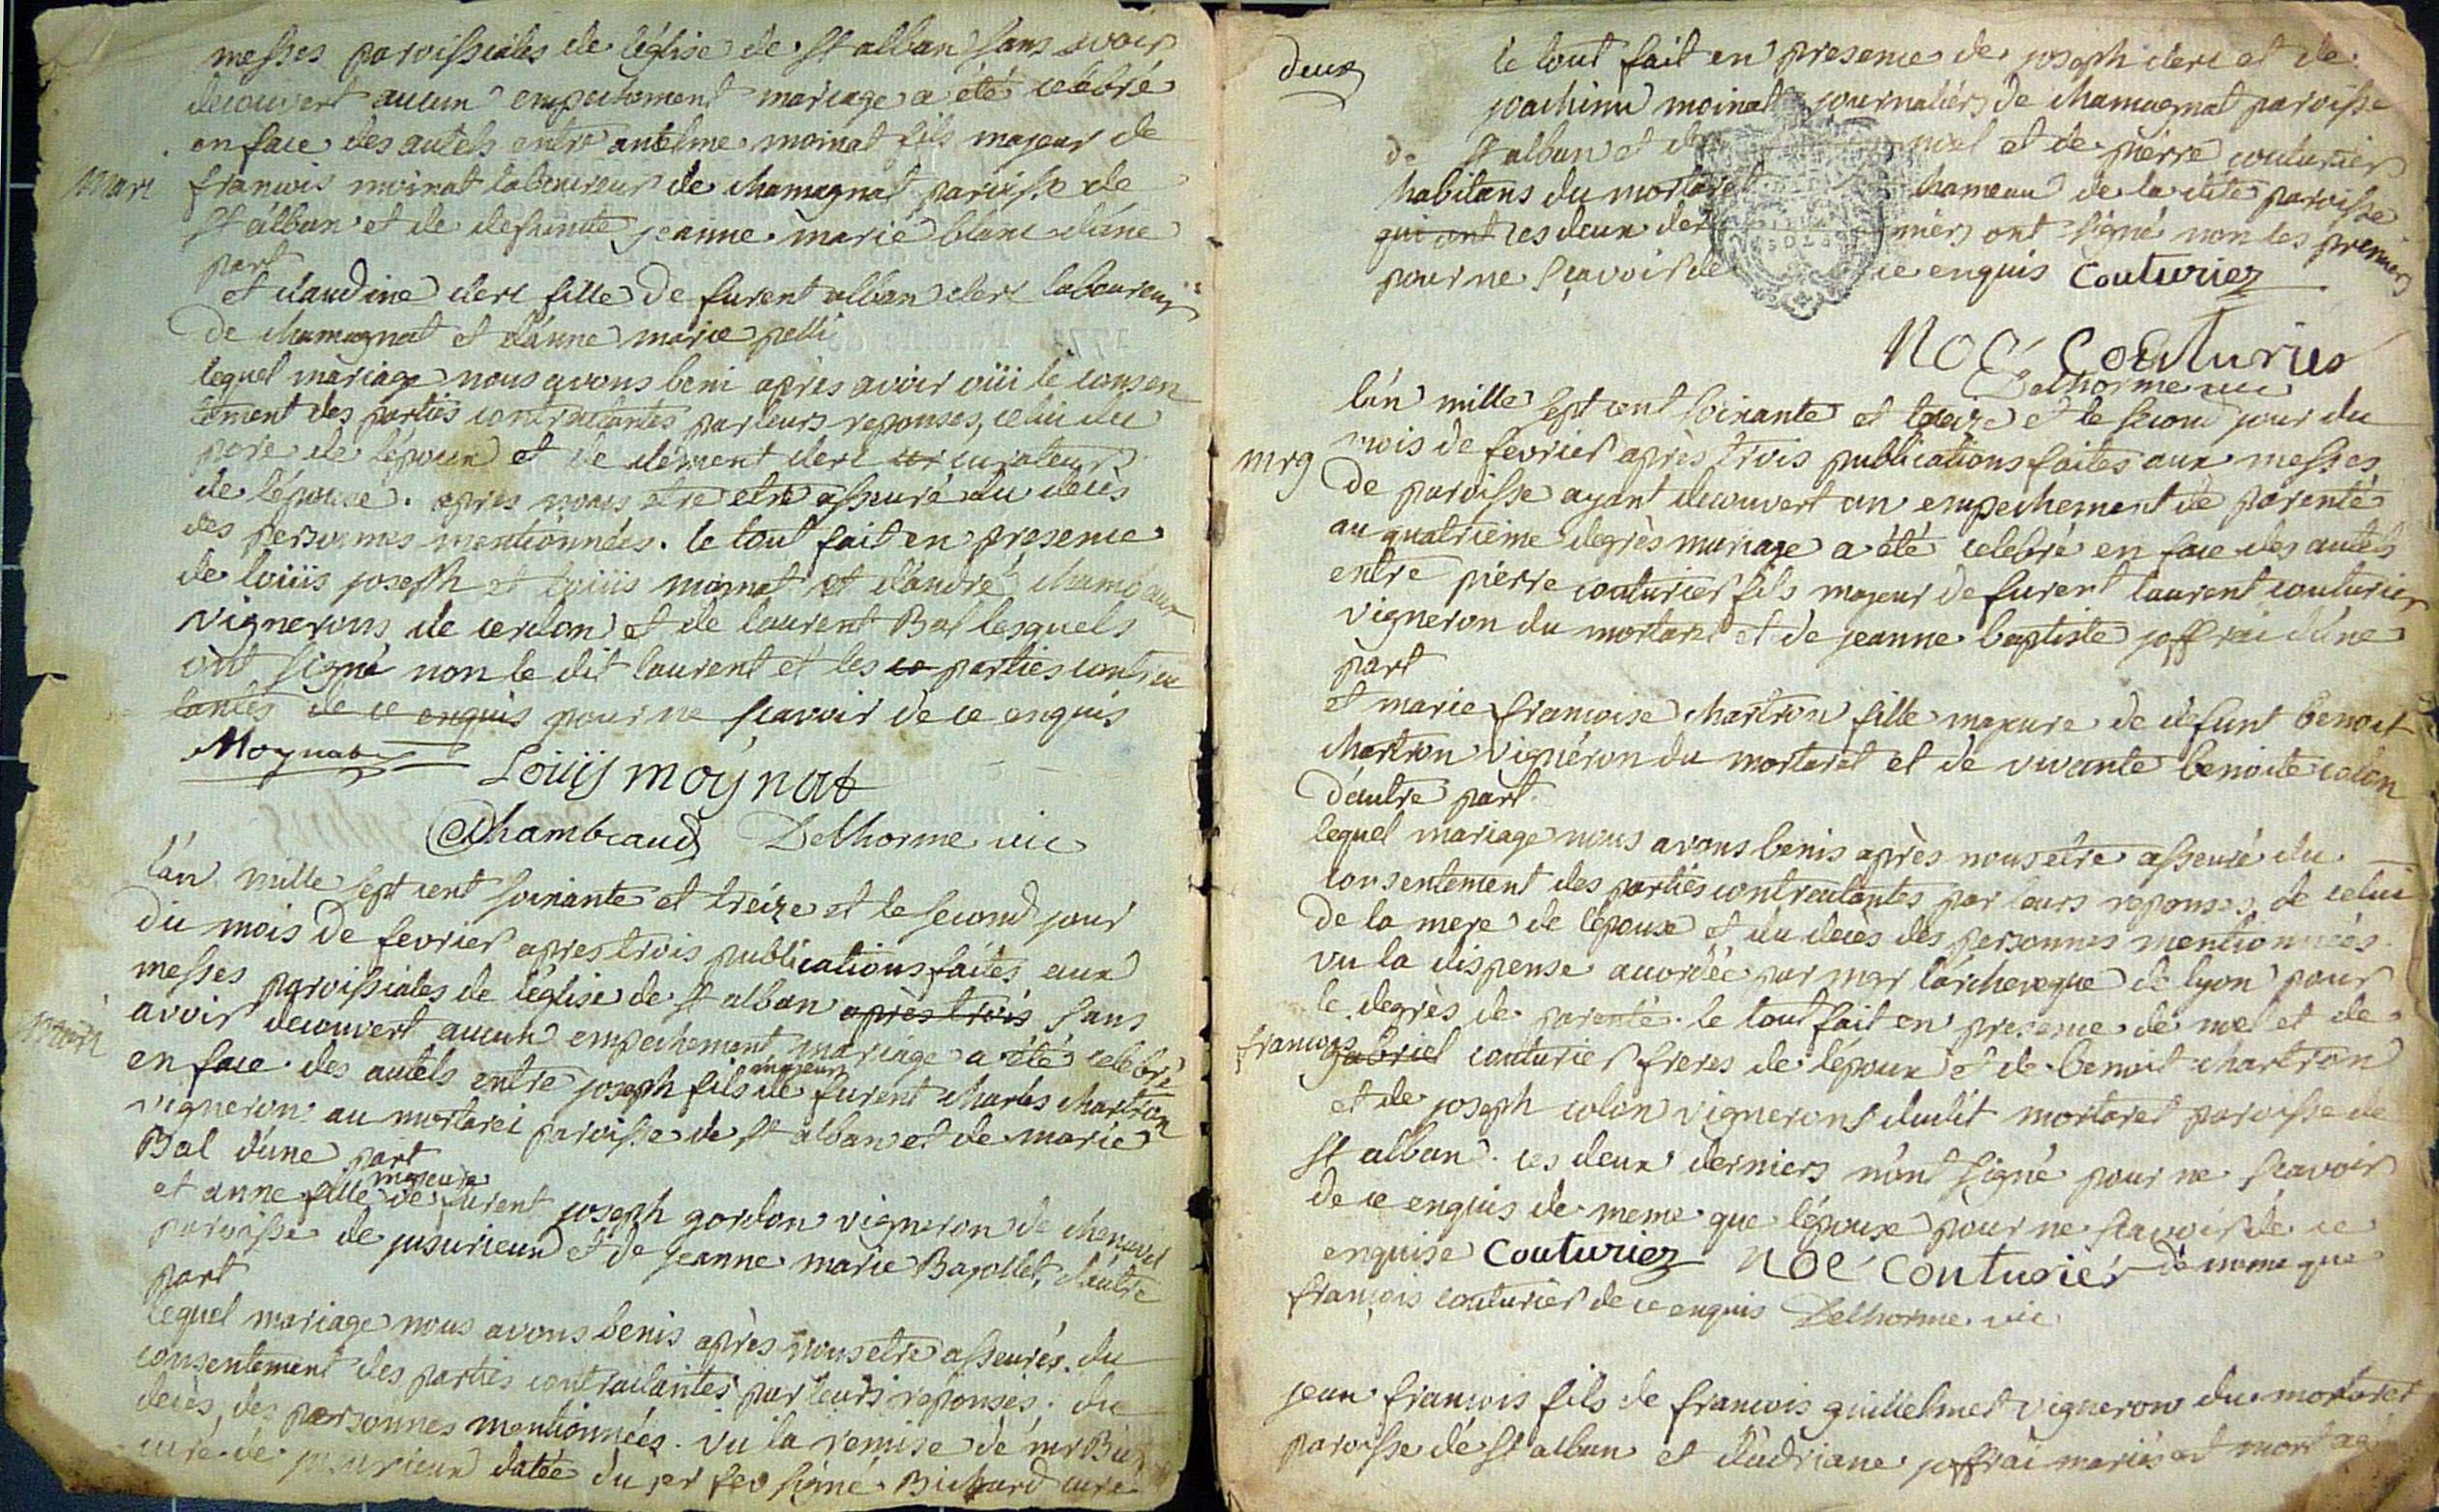 messes paroissiales de l'église de st alban sans avoir
decouvert aucun empechement mariage a été celébré
en face des autels entre antelme moinat fils majeur de
mari
francois moinat laboureur de chamagnat paroisse de
st alban et de defunte jeanne marie blanc d'une
part
et claudine clerc fille de furent alban clerc laboureur
de chamagnat et d'anne marie pelli
lequel mariage nous avons beni après avoir oüi le consen
tement des parties contractantes par leurs reponses, celui du
pere de l'époux et de clement clerc cur curateur
de l'épouse. apres nous etre etre asseuré du decès
des personnes mentionnées. le tout fait en presence
de loüis joseph et loüis moinat et d'andré chambaux
vignerons de cerdon et de laurent Bal lesquels
ont signé non le dit laurent et les co parties contrac
tantes de ce enquis pour ne scavoir de ce enquis
Moynat
Loüis moynat
Chambeaud Delhorme vic
l'an mille sept cent soixante et treize et le second jour
du mois de fevrier apres trois publications faites aux
messes paroissiales de l'église de st alban après trois sans
mari
avoir decouvert aucun empechement mariage a été celebré
en face des autels entre joseph fils majeur de furent charles chartron
vigneron au mortarei paroisse de st alban et de marie
Bal d'une part
et anne fille majeure de furent joseph gordon vigneron de chenavel
paroisse de jusurieux et de jeanne marie Bajollet, d'autre
part
lequel mariage nous avons benis après nous etre asseurés du
consentement des parties contractantes par leurs reponses. du
decès, des personnes mentionnées. vu la remise de mr
curé de jusurieux datée du 1er fev signé Bichard curé
deux
le tout fait en presence de joseph clerc et de
joachim moinat journaliers de chamagnat paroisse
de st alban et de noel et de pierre couturier
habitans du mortaret hameau de la dite paroisse
qui ont ces deux derniers ont signé non les premiers
pour ne sçavoir de ce enquis Couturier
NOÉ Couturier
Delhorme vic
l'an mille sept cent soixante et treize et le second jour du
mrg
mois de fevrier après trois publications faites aux messes
de paroisse ayant decouvert un empechement de parenté
au quatrieme degrès mariage a été celebré en face des autels
entre pierre couturier fils majeur de furent laurent couturier
vigneron du mortaret et de jeanne baptiste joffrai d'une
part
et marie francoise chartron fille majeure de defunt benoit
chartron vigneron du mortaret et de vivante benoite colon
d'autre part
lequel mariage nous avons benis après nous etre asseuré du
consentement des parties contractantes par leurs reponses, de celui
de la mere de l'épouse et du decès des personnes mentionnées.
vu la dispense accordée par mgr l'archeveque de lyon pour
le degrès de parenté. le tout fait en presence de noel et de
francois gabriel couturier freres de l'époux et de benoit chartron
et de joseph colon vignerons dudit mortaret paroisse de
st alban. ces deux derniers n'ont signé pour ne scavoir
de ce enquis de meme que l'épouse pour ne scavoir de ce
enquise Couturier NOÉ Couturier de meme que
françois couturier de ce enquis Delhorme vic
jean francois fils de francois guillelmet vigneron du mortaret
paroisse de st alban et d'udriane joffrai mariés est mort agé